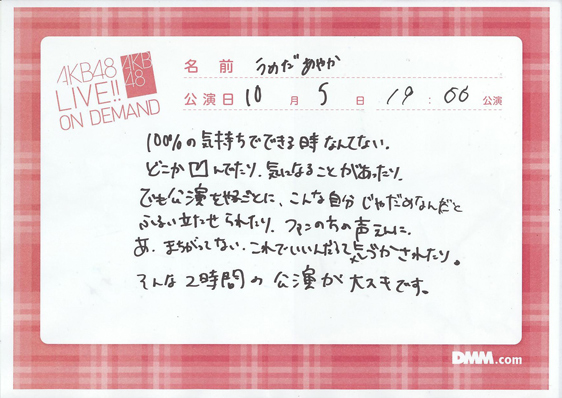 AKB48
LIVE!!
ON DEMAND
AKB
48
名前 うめだあやか
公演日 10 月 5 日 19:00 公演
100%の気持ちでできる時なんてない。
どこか凹んでたり、気になることがあったり。
でも公演をやるごとに、こんな自分じゃだめなんだと
ふるい立たせられたり、ファンの方の声えんに、
あ、まちがってない、これでいいんだって気づかされたり。
そんな2時間の公演が大スキです。
DMM.com